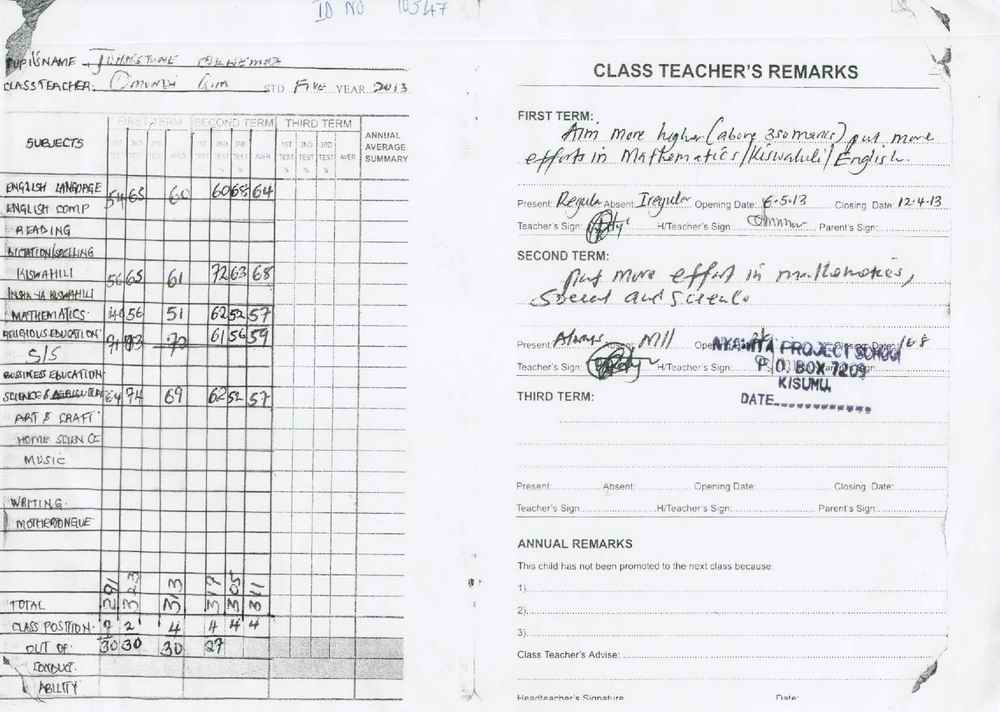 ID NO 10547
PUPIL'S NAME JOHNSTONE
CLASS TEACHER: STD FIVE YEAR 2013
SUBJECTS FIRST TERM SECOND TERM THIRD TERM ANNUAL AVERAGE SUMMARY
1ST TEST 3RD TEST AVER 1ST TEST 2ND TEST 3RD TEST AVER
ENGLISH LANGUAGE 54 65 60 60 68 64
ENGLISH COMP
READING
DICTATION/SPELLING
KISWAHILI 56 65 61 72 63 68
INSHA YA KISWAHILI
MATHEMATICS 56 51 62 52 57
RELIGIOUS EDUCATION 61 56 59
S/S
BUSINESS EDUCATION
SCIENCE & AGRICULTURE 64 74 69 62 52 57
ART & CRAFT
HOME SCIENCE
MUSIC
WRITING
MOTHERTONGUE
TOTAL 291 323 313 317 305 311
CLASS POSITION 2 4 4 4 4
OUT OF 30 30 30 27
CONDUCT
ABILITY
CLASS TEACHER'S REMARKS
FIRST TERM:
Aim more higher (above 350 marks) put more
efforts in Mathematics/Kiswahili/English.
Present: Regular Absent: Irregular Opening Date: 6-5-13 Closing Date: 12-4-13
Teacher's Sign: H/Teacher's Sign: Parent's Sign:
SECOND TERM:
Put more effort in mathematics,
Social and Science
Present: Always Absent: Nil
Teacher's Sign: H/Teacher's Sign:
PROJECT SCHOOL
P.O. BOX 7209
KISUMU
DATE
THIRD TERM:
Present: Absent: Opening Date: Closing Date:
Teacher's Sign H/Teacher's Sign: Parent's Sign:
ANNUAL REMARKS
This child has not been promoted to the next class because:
1)
2)
3)
Class Teacher's Advise:
Headteacher's Signature Date: